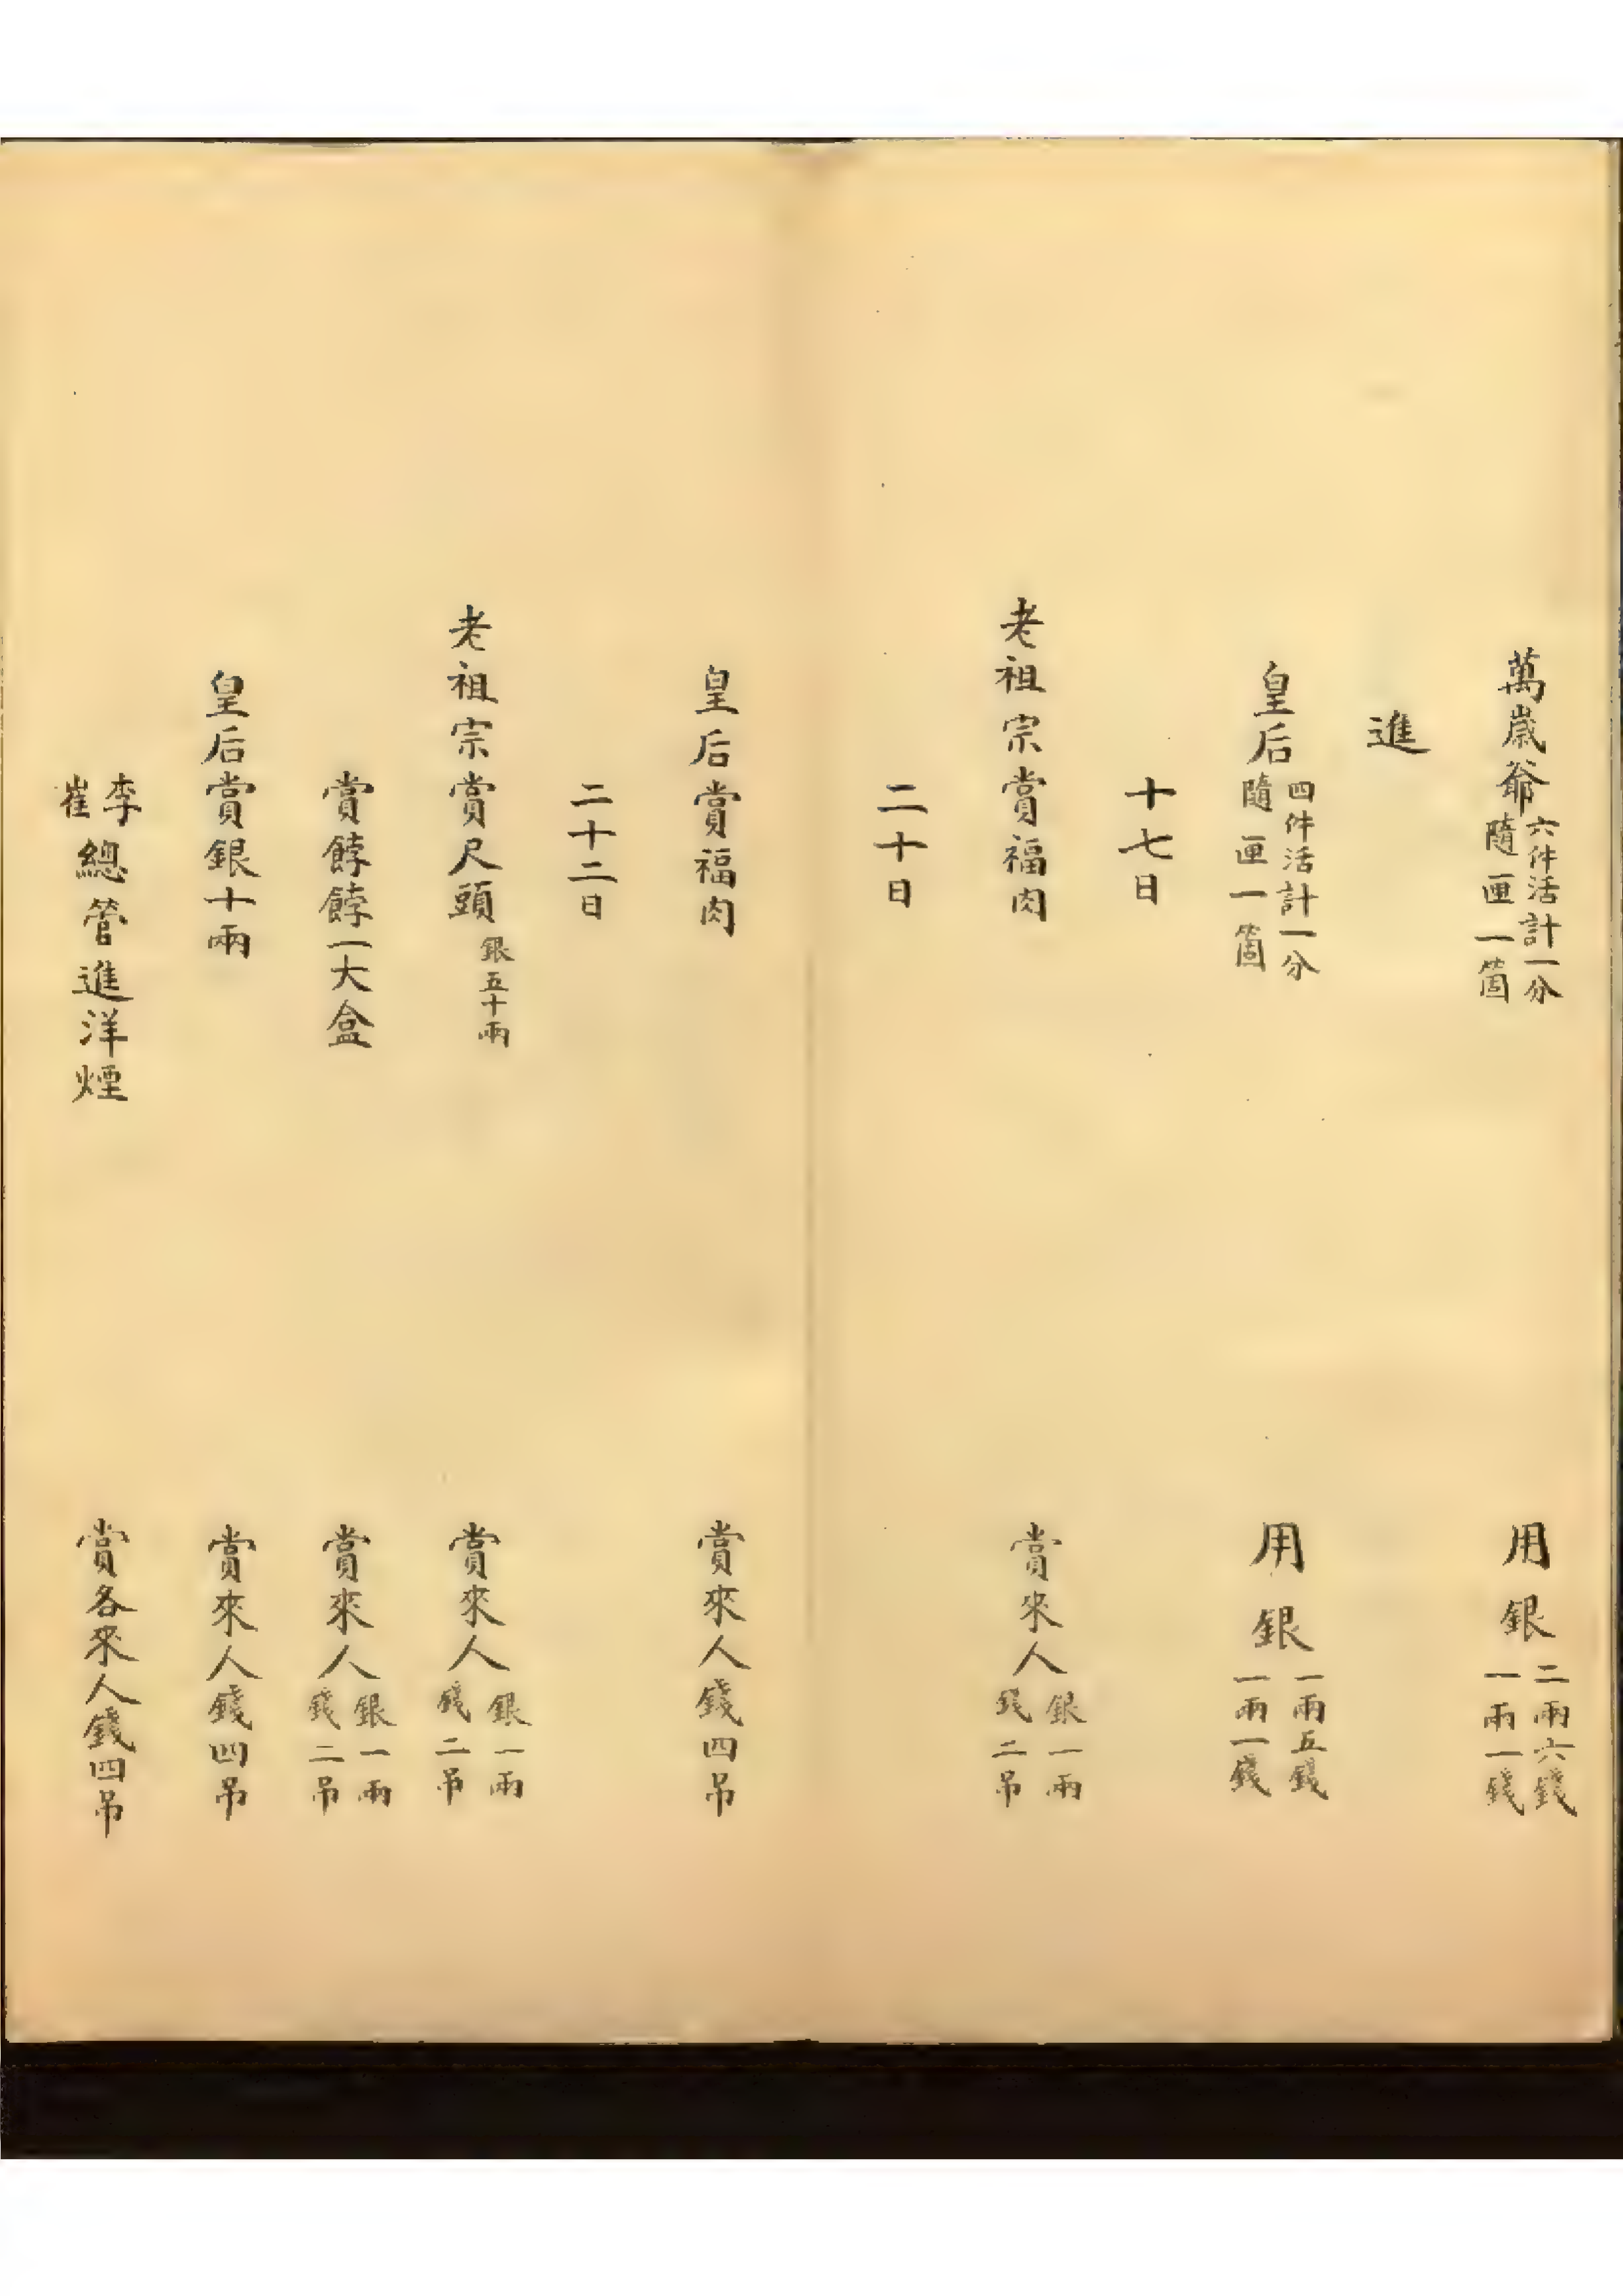 萬歲爺六件活計一分隨匣一箇 用銀二兩六錢一兩一錢
進
皇后四件活計一分隨匣一箇 用銀一兩五錢一兩一錢
十七日
老祖宗賞福肉 賞來人銀一兩錢二吊
二十日
皇后賞福肉 賞來人錢四吊
二十二日
老祖宗賞尺頭銀五十兩 賞來人銀一兩錢二吊
賞餑餑一大盒 賞來人銀一兩錢二吊
皇后賞銀十兩 賞來人錢四吊
李崔總管進洋煙 賞各來人錢四吊